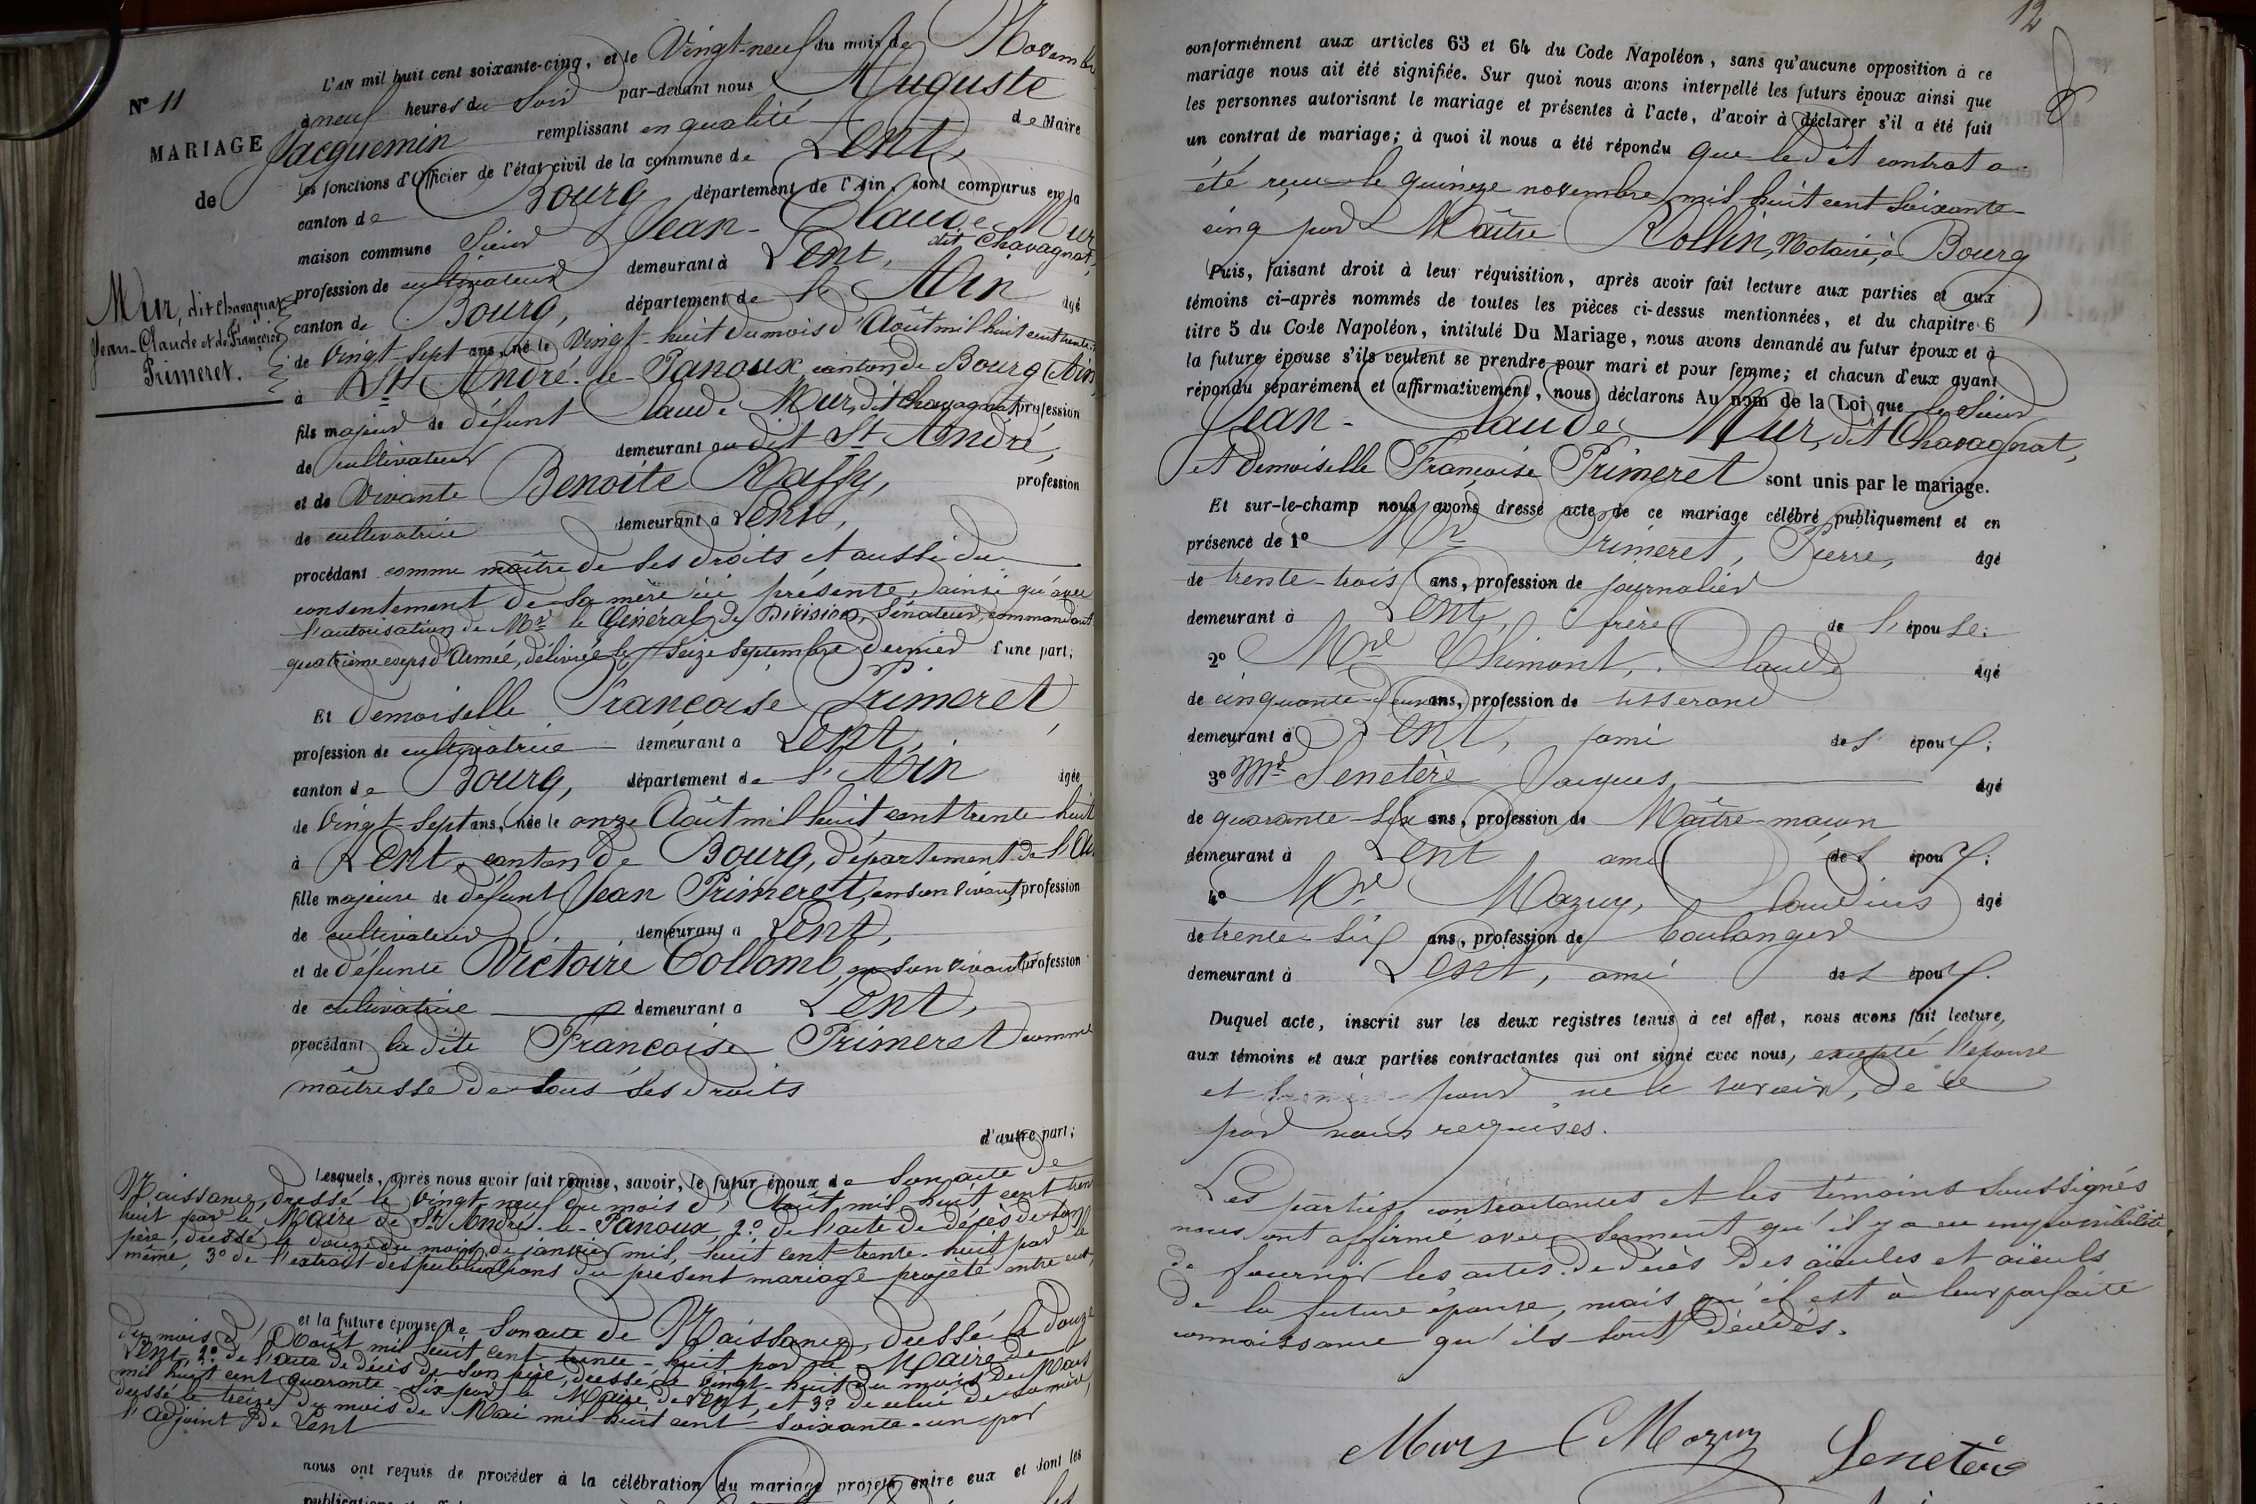 N° 11
MARIAGE
de
Mur, dit Chavagnat
Jean-Claude et de Françoise
Primeret.
L'AN mil huit cent soixante-cinq, et le Vingt-neuf du mois de Novembre
à neuf heures du Soir par-devant nous Auguste
Jacquemin remplissant en qualité de Maire
les fonctions d'Officier de l'état civil de la commune de Lent,
canton de Bourg département de l'Ain, sont comparus en la
maison commune Sieur Jean-Claude Mur
dit Chavagnat,
profession de cultivateur demeurant à Lent,
canton de Bourg, département de l'Ain âgé
de Vingt-sept ans, né le Vingt-huit du mois d'Août mil huit cent trente-
à St André-le-Panoux canton de Bourg (Ain
fils majeur de défunt Claude Mur, dit Chavagnat profession
de cultivateur demeurant au dit St André,
et de Vivante Benoîte Raffy, profession
de cultivatrice demeurant à Lent,
procédant comme maître de ses droits et aussi du
consentement de sa mère ici présente, ainsi qu'avec
l'autorisation de Mr le Général de Division, Sénateur, commandant
quatrième corps d'Armée, délivrée le seize Septembre dernier d'une part;
Et demoiselle Françoise Primeret
profession de cultivatrice demeurant à Lent,
canton de Bourg, département de l'Ain âgée
de Vingt-sept ans, née le onze Août mil huit cent trente-huit
à Lent, canton de Bourg, département de l'Ain
fille majeure de défunt Jean Primeret, en son vivant profession
de cultivateur demeurant à Lent,
et de défunte Victoire Collomb, en son vivant profession
de cultivatrice demeurant à Lent,
procédant la dite Françoise Primeret comme
maîtresse de tous ses droits
d'autre part;
Lesquels, après nous avoir fait remise, savoir, le futur époux de son acte de
Naissance, dressé le vingt-neuf du mois d'Août mil huit cent trente
huit par le Maire de St André-le-Panoux, 2° de l'acte de décès de son
père, dressé le douze du mois de janvier mil huit cent trente-huit par le
même, 3° de l'extrait des publications du présent mariage projeté entre eux,
et la future épouse de son acte de Naissance, dressé le douze
du mois d'Août mil huit cent trente-huit par le Maire de
Lent, 2° de l'acte de décès de son père, dressé le vingt-huit du mois de Mars
mil huit cent quarante-six par le Maire de Lent, et 3° de celui de sa mère,
dressé le treize du mois de Mai mil huit cent soixante-un par
l'adjoint de Lent
nous ont requis de procéder à la célébration du mariage projeté entre eux et dont les
12
conformément aux articles 63 et 64 du Code Napoléon, sans qu'aucune opposition à ce
mariage nous ait été signifiée. Sur quoi nous avons interpellé les futurs époux ainsi que
les personnes autorisant le mariage et présentes à l'acte, d'avoir à déclarer s'il a été fait
un contrat de mariage; à quoi il nous a été répondu que le dit contrat a
été reçu le quinze novembre mil huit cent soixante-
cinq par Maître Rollin, Notaire, à Bourg
Puis, faisant droit à leur réquisition, après avoir fait lecture aux parties et aux
témoins ci-après nommés de toutes les pièces ci-dessus mentionnées, et du chapitre 6
titre 5 du Code Napoléon, intitulé Du Mariage, nous avons demandé au futur époux et à
la future épouse s'ils veulent se prendre pour mari et pour femme; et chacun d'eux ayant
répondu séparément et affirmativement, nous déclarons Au nom de la Loi que le Sieur
Jean-Claude Mur, dit Chavagnat,
et Demoiselle Françoise Primeret sont unis par le mariage.
Et sur-le-champ nous avons dressé acte de ce mariage célébré publiquement et en
présence de 1° Mr Primeret, Pierre, âgé
de trente-trois ans, profession de journalier
demeurant à Lent, frère de l'épouse;
2° Mr Thimont, Claude âgé
de cinquante-deux ans, profession de tisserand
demeurant à Lent, ami de l'époux;
3° Mr Senetère Jacques âgé
de quarante-six ans, profession de Maître-maçon
demeurant à Lent ami de l'époux;
4° Mr Mazuy, Claudius âgé
de trente-six ans, profession de boulanger
demeurant à Lent, ami de l'époux.
Duquel acte, inscrit sur les deux registres tenus à cet effet, nous avons fait lecture,
aux témoins et aux parties contractantes qui ont signé avec nous, excepté l'épouse
et pour ne le savoir, de ce
par nous requises.
Les parties contractantes et les témoins soussignés
nous ont affirmé avec serment qu'il y a eu impossibilité
de fournir les actes de décès des aïeules et aïeuls
de la future épouse, mais qu'il est à leur parfaite
connaissance qu'ils sont décédés.
Mur C Mazuy Senetère